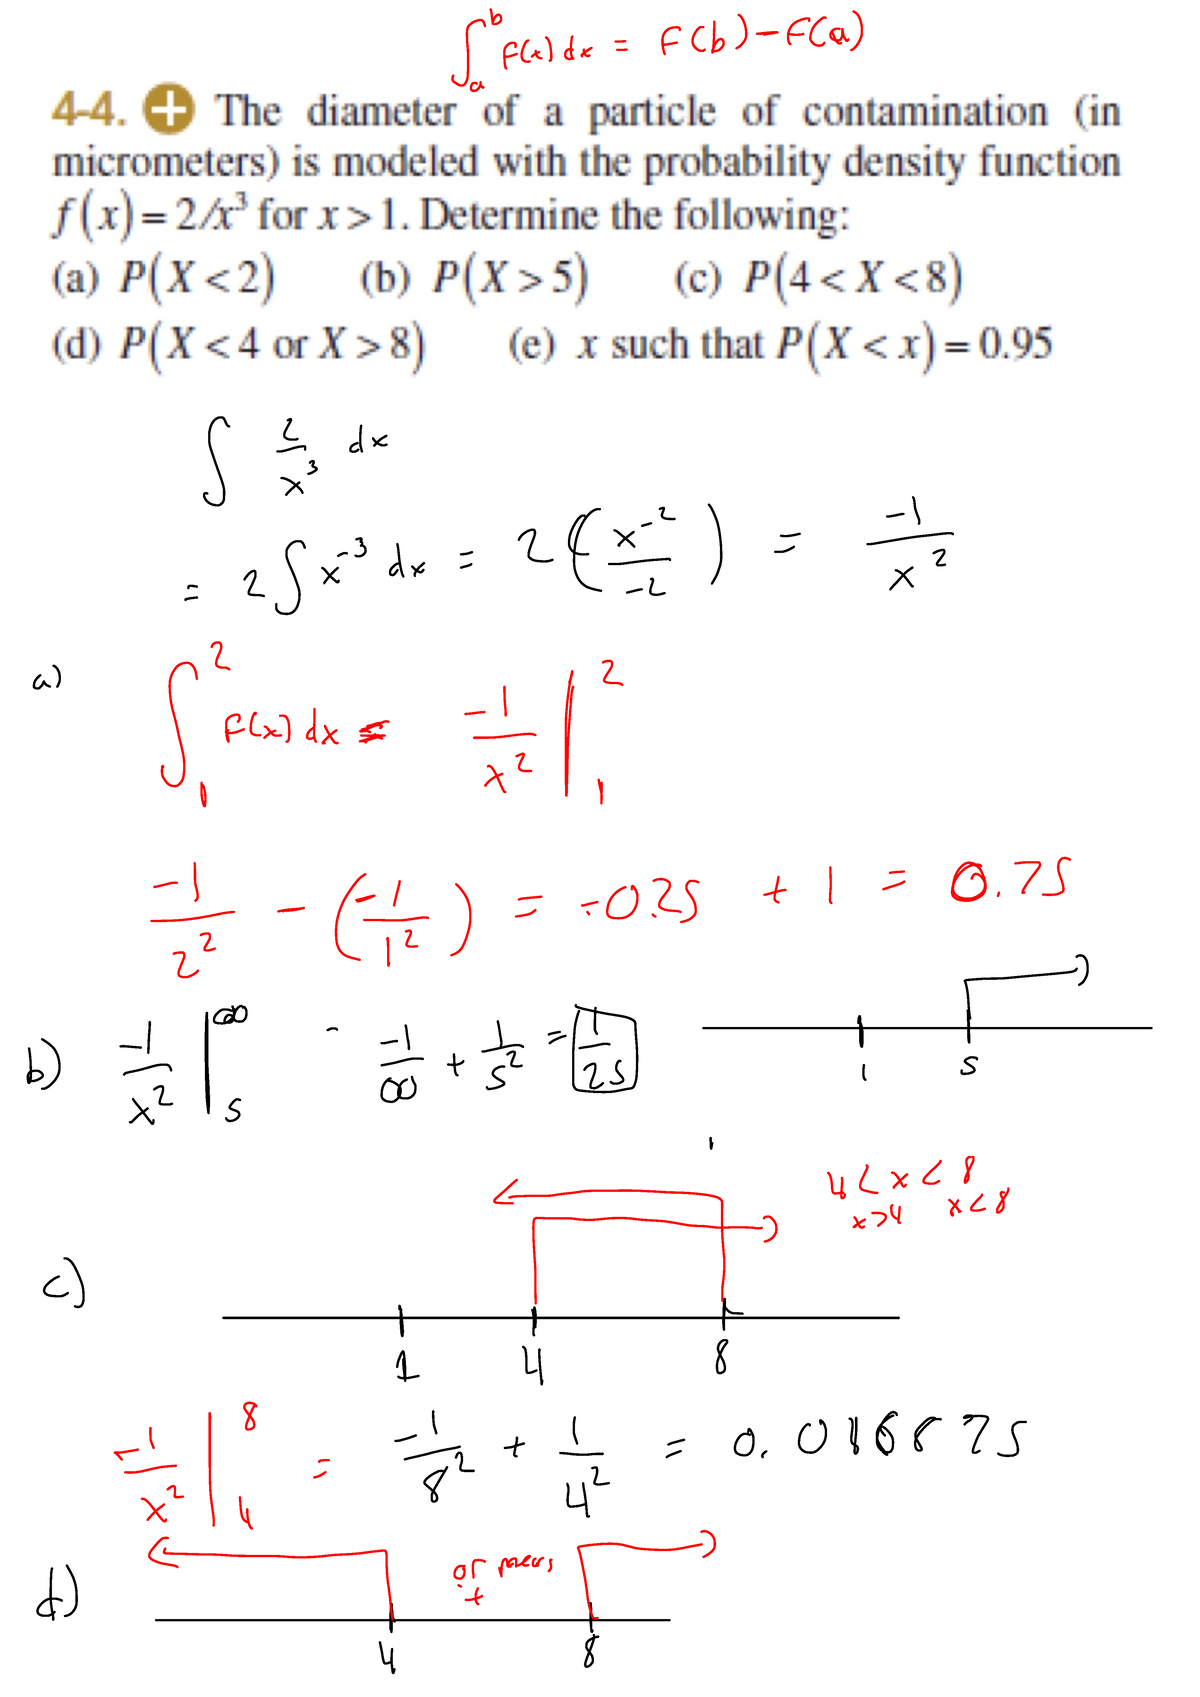 ∫ₐᵇ F(x) dx = F(b) - F(a)
4-4. + The diameter of a particle of contamination (in
micrometers) is modeled with the probability density function
f(x) = 2/x³ for x > 1. Determine the following:
(a) P(X < 2) (b) P(X > 5) (c) P(4 < X < 8)
(d) P(X < 4 or X > 8) (e) x such that P(X < x) = 0.95
∫ 2/x³ dx
= 2 ∫ x⁻³ dx = 2 (x⁻²/-2) = -1/x²
a) ∫₁² F(x) dx = -1/x² |₁²
-1/2² - (-1/1²) = -0.25 + 1 = 0.75
b) -1/x² |₅^∞ -1/∞ + 1/5² = 1/25
1 5
4 < x < 8
x > 4 x < 8
c)
1 4 8
-1/x² |₄⁸ = -1/8² + 1/4² = 0.
d) or
+
4 8